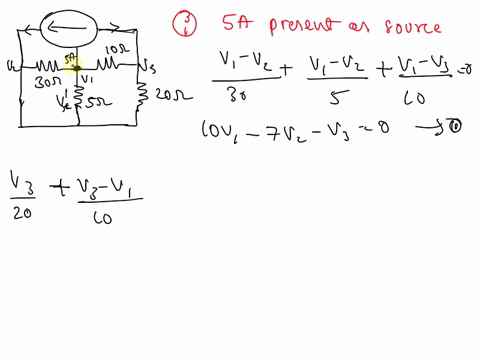 ③ 5A present as source
10Ω
5A
V₂
30Ω
V₁
V₃
5Ω
20Ω
V₁-V₂/30 + V₁-V₂/5 + V₁-V₃/10 =0
10V₁ - 7V₂ - V₃ = 0 → ①
V₃/20 + V₃-V₁/10